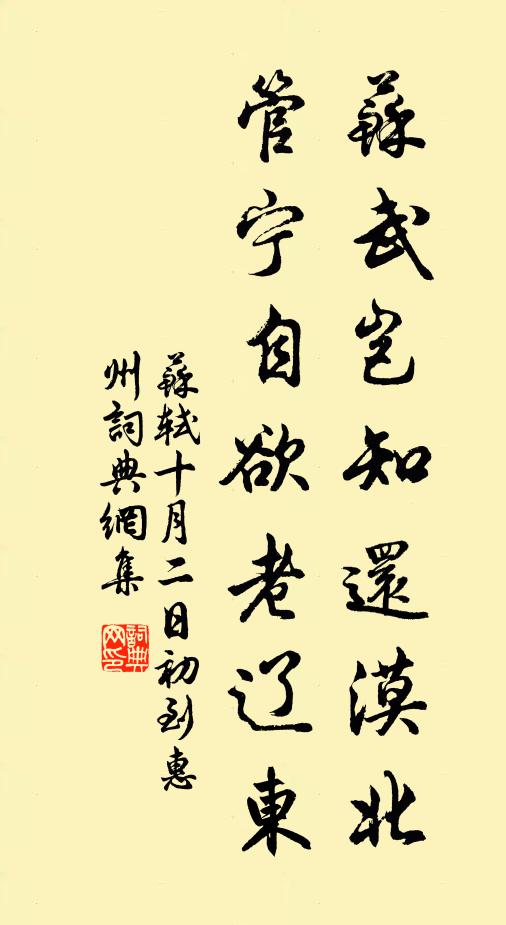 蘇武豈知還漠北
管宁自欲老辽東
蘇軾十月二日初到惠
州詞典網集
詞典
网印